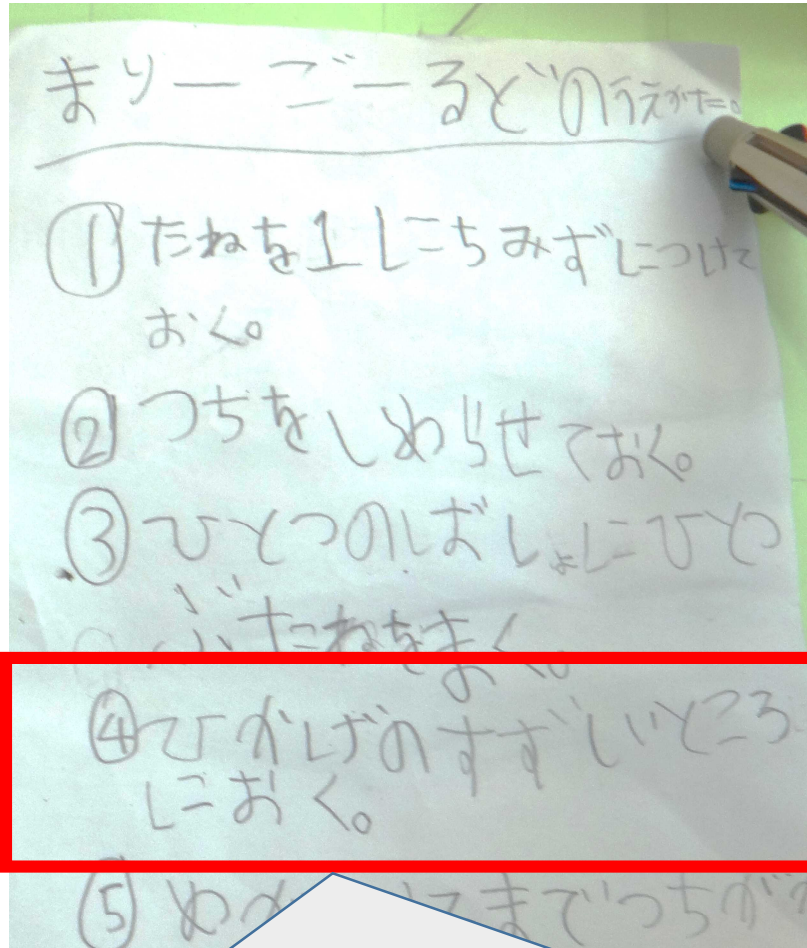 まりーごーるどのうえかた。
①たねを1にちみずにつけて
おく。
②つちをしめらせておく。
③ひとつのばしょにひとつ
ぶたねをまく。
④ひかげのすずしいところ
におく。
⑤ までつちが